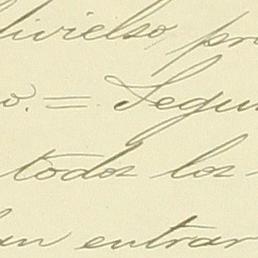 divielso, pr
o. = Segun
todos los
an entrar